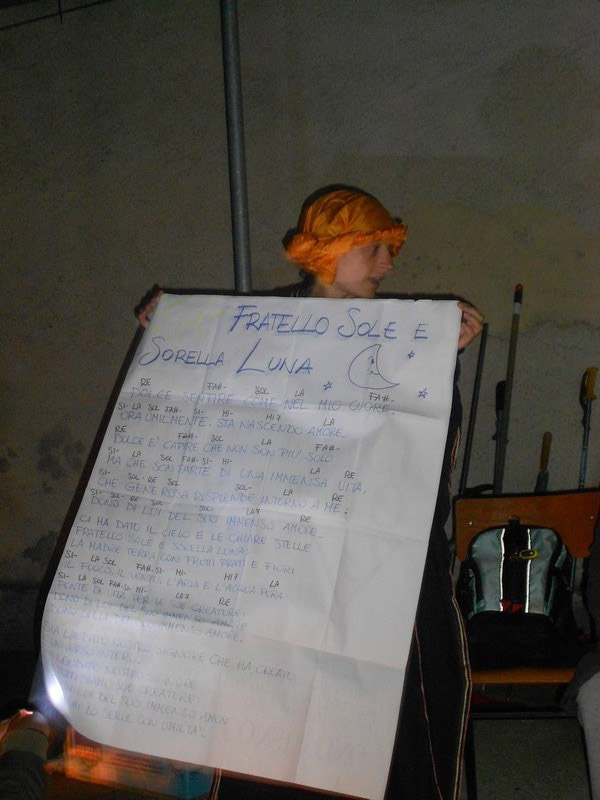 FRATELLO SOLE E
SORELLA LUNA
RE FA#- SOL LA FA#-
DOLCE SENTIRE COME NEL MIO CUORE,
SI- LA SOL FA#- SI- MI- MI7 LA
ORA UMILMENTE, STA NASCENDO AMORE.
RE FA#- SOL LA FA#-
DOLCE E' CAPIRE CHE NON SON PIU' SOLO
SI- LA SOL FA#- SI- MI- LA RE
MA CHE SON PARTE DI UNA IMMENSA VITA,
SI- SOL- RE SOL SOL- LA RE
CHE GENEROSA RISPLENDE INTORNO A ME:
SI- SOL- RE SOL LA7 RE
DONO DI LUI DEL SUO IMMENSO AMORE.
CI HA DATO IL CIELO E LE CHIARE STELLE
FRATELLO SOLE E SORELLA LUNA;
LA MADRE TERRA CON FRUTTI PRATI E FIORI
SI- LA SOL FA#- SI- MI- MI7 LA
IL FUOCO, IL VENTO, L'ARIA E L'ACQUA PURA
SI- LA SOL FA#- SI- MI- LA7 RE
FONTE DI VITA PER LE SUE CREATURE:
DONO DI LUI DEL SUO IMMENSO AMORE
DONO DI LUI DEL SUO IMMENSO AMORE.
SIA LAUDATO NOSTRO SIGNORE CHE HA CREATO
UNIVERSO INTERO.
NOSTRO SIGNORE
SUE CREATURE
DEL SUO IMMENSO AMOR
LO SERVE CON UMILTA'